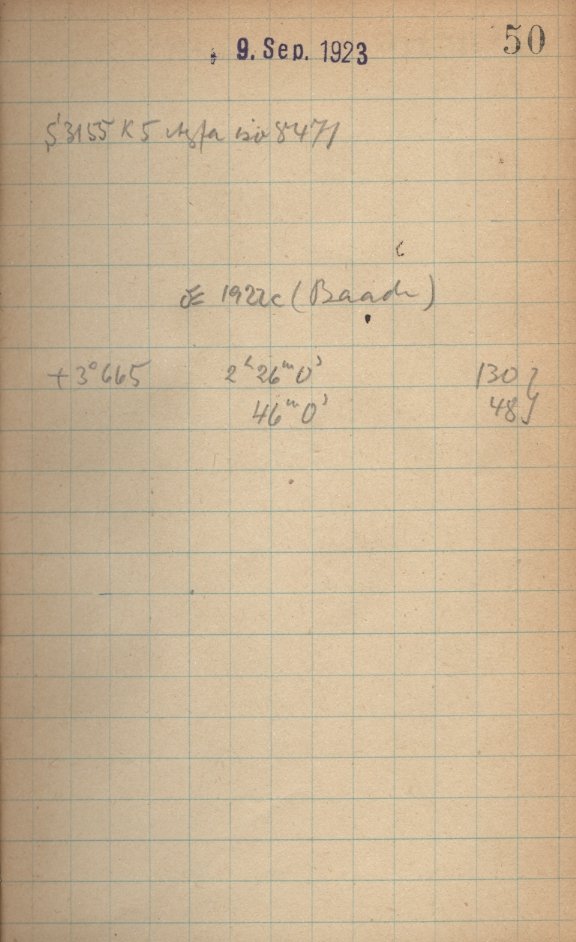 9. Sep. 1923
50
S 3155 K5 Agfa iso 8471
1922c (Baade)
+3°665 2ʰ26ᵐ0ˢ 130
46ᵐ0ˢ 48